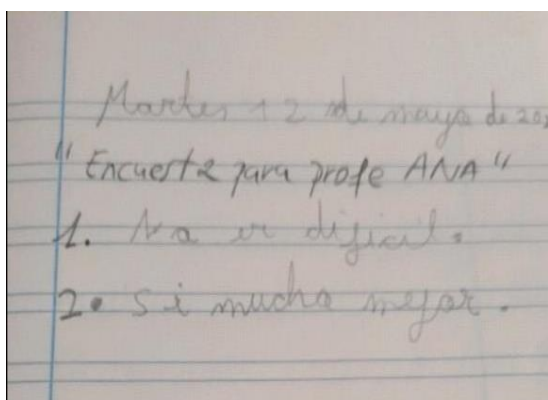 Martes 12 de mayo de 202
"Encuesta para profe ANA"
1. No es dificil.
2. Si mucho mejor.